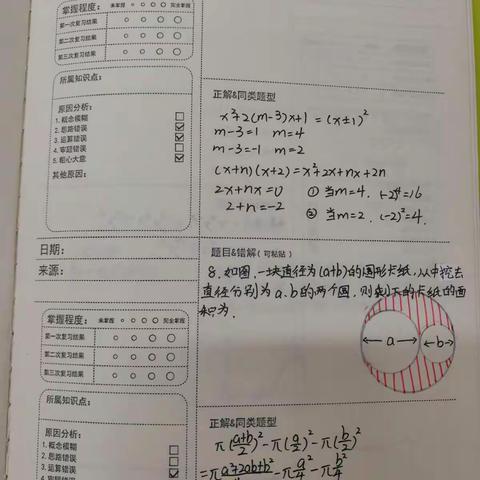 掌握程度: 未掌握 完全掌握
第一次复习结果
第二次复习结果
第三次复习结果
所属知识点:
原因分析:
1. 概念模糊
2. 思路错误
3. 运算错误
4. 审题错误
5. 粗心大意
其他原因:
正解&同类题型
x²+2(m-3)x+1 = (x±1)²
m-3=1 m=4
m-3=-1 m=2
(x+n)(x+2)=x²+2x+nx+2n
2x+nx=0 ① 当m=4. (-2)⁴=16
2+n=-2 ② 当m=2. (-2)²=4.
日期:
来源:
题目&错解(可粘贴)
8. 如图.一块直径为(a+b)的圆形卡纸,从中挖去
直径分别为a.b的两个圆,则剩下的卡纸的面
积为.
a b
掌握程度: 未掌握 完全掌握
第一次复习结果
第二次复习结果
第三次复习结果
所属知识点:
原因分析:
1. 概念模糊
2. 思路错误
3. 运算错误
4. 审题错误
正解&同类题型
π(a+b/2)²-π(a/2)²-π(b/2)²
=π a²+2ab+b²/4-π a²/4-π b²/4